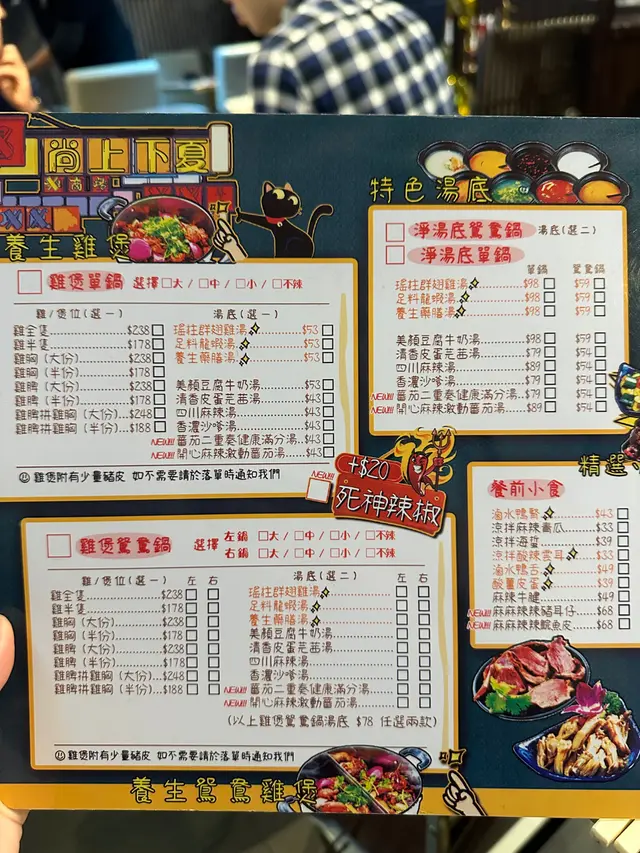 尚上下夏
養生雞煲
雞煲單鍋 選擇 □大 / □中 / □小 / □不辣
雞/煲位(選一)
雞全隻...$238
雞半隻...$178
雞胸 (大份)...$238
雞胸 (半份)...$178
雞髀 (大份)...$238
雞髀 (半份)...$178
雞髀拼雞胸 (大份)...$248
雞髀拼雞胸 (半份)...$188
湯底(選一)
瑤柱群翅雞湯...$53
足料龍蝦湯...$53
養生藥膳湯...$53
美顏豆腐牛奶湯...$53
清香皮蛋芫茜湯...$43
四川麻辣湯...$43
香濃沙嗲湯...$43
NEW!!! 蕃茄二重奏健康滿分湯..$43
NEW!!! 開心麻辣激動蕃茄湯...$43
雞煲附有少量豬皮 如不需要請於落單時通知我們
NEW!!! +$20
死神辣椒
雞煲鴛鴦鍋 選擇
左鍋 □大 / □中 / □小 / □不辣
右鍋 □大 / □中 / □小 / □不辣
雞/煲位(選一) 左 右
雞全隻...$238
雞半隻...$178
雞胸 (大份)...$238
雞胸 (半份)...$178
雞髀 (大份)...$238
雞髀 (半份)...$178
雞髀拼雞胸 (大份)...$248
雞髀拼雞胸 (半份)...$188
湯底(選二) 左 右
瑤柱群翅雞湯
足料龍蝦湯
養生藥膳湯
美顏豆腐牛奶湯
清香皮蛋芫茜湯
四川麻辣湯
香濃沙嗲湯
NEW!!! 蕃茄二重奏健康滿分湯
NEW!!! 開心麻辣激動蕃茄湯
(以上雞煲鴛鴦鍋湯底 $78 任選兩款)
雞煲附有少量豬皮 如不需要請於落單時通知我們
養生鴛鴦雞煲
特色湯底
淨湯底鴛鴦鍋 湯底(選二)
淨湯底單鍋
單鍋 鴛鴦鍋
瑤柱群翅雞湯...$98 $59
足料龍蝦湯...$98 $59
養生藥膳湯...$98 $59
美顏豆腐牛奶湯...$98 $59
清香皮蛋芫茜湯...$79 $54
四川麻辣湯...$89 $54
香濃沙嗲湯...$79 $54
NEW!!! 蕃茄二重奏健康滿分湯..$79 $54
NEW!!! 開心麻辣激動蕃茄湯...$89 $54
精選
餐前小食
滷水鴨腎...$43
涼拌麻辣青瓜...$33
涼拌海蜇...$39
涼拌酸辣雲耳...$33
滷水鴨舌...$49
酸薑皮蛋...$39
麻辣牛腱...$49
NEW!!! 麻麻辣辣豬耳仔...$68
NEW!!! 麻麻辣辣鯇魚皮...$68